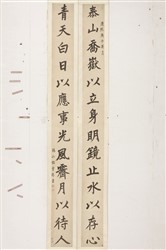 泰山喬嶽以立身明鏡止水以存心
青天白日以應事光風霽月以待人